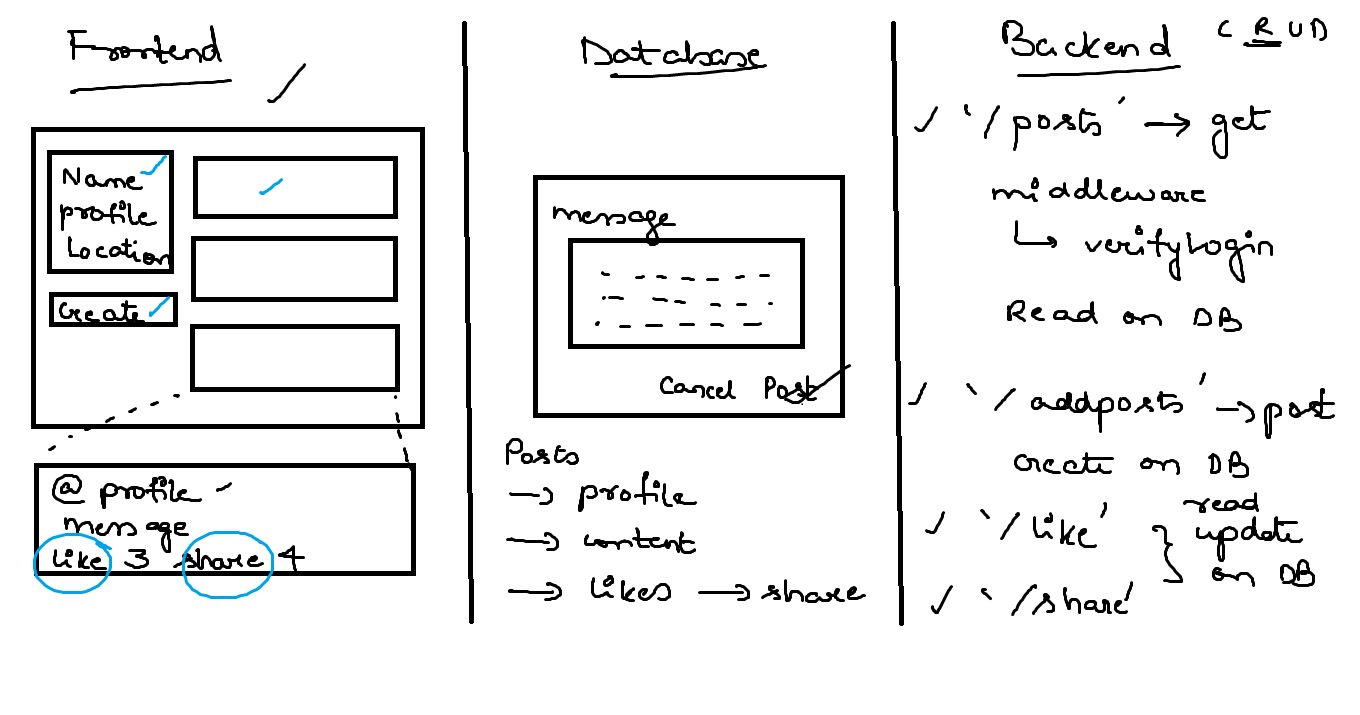 Frontend
Name
profile
Location
Create
@ profile
message
like 3 share 4
Database
message
Cancel Post
Posts
→ profile
→ content
→ likes → share
Backend CRUD
'/posts' → get
middleware
↳ verifyLogin
Read on DB
'/addposts' → post
create on DB
'/like' } read
update
on DB
'/share'